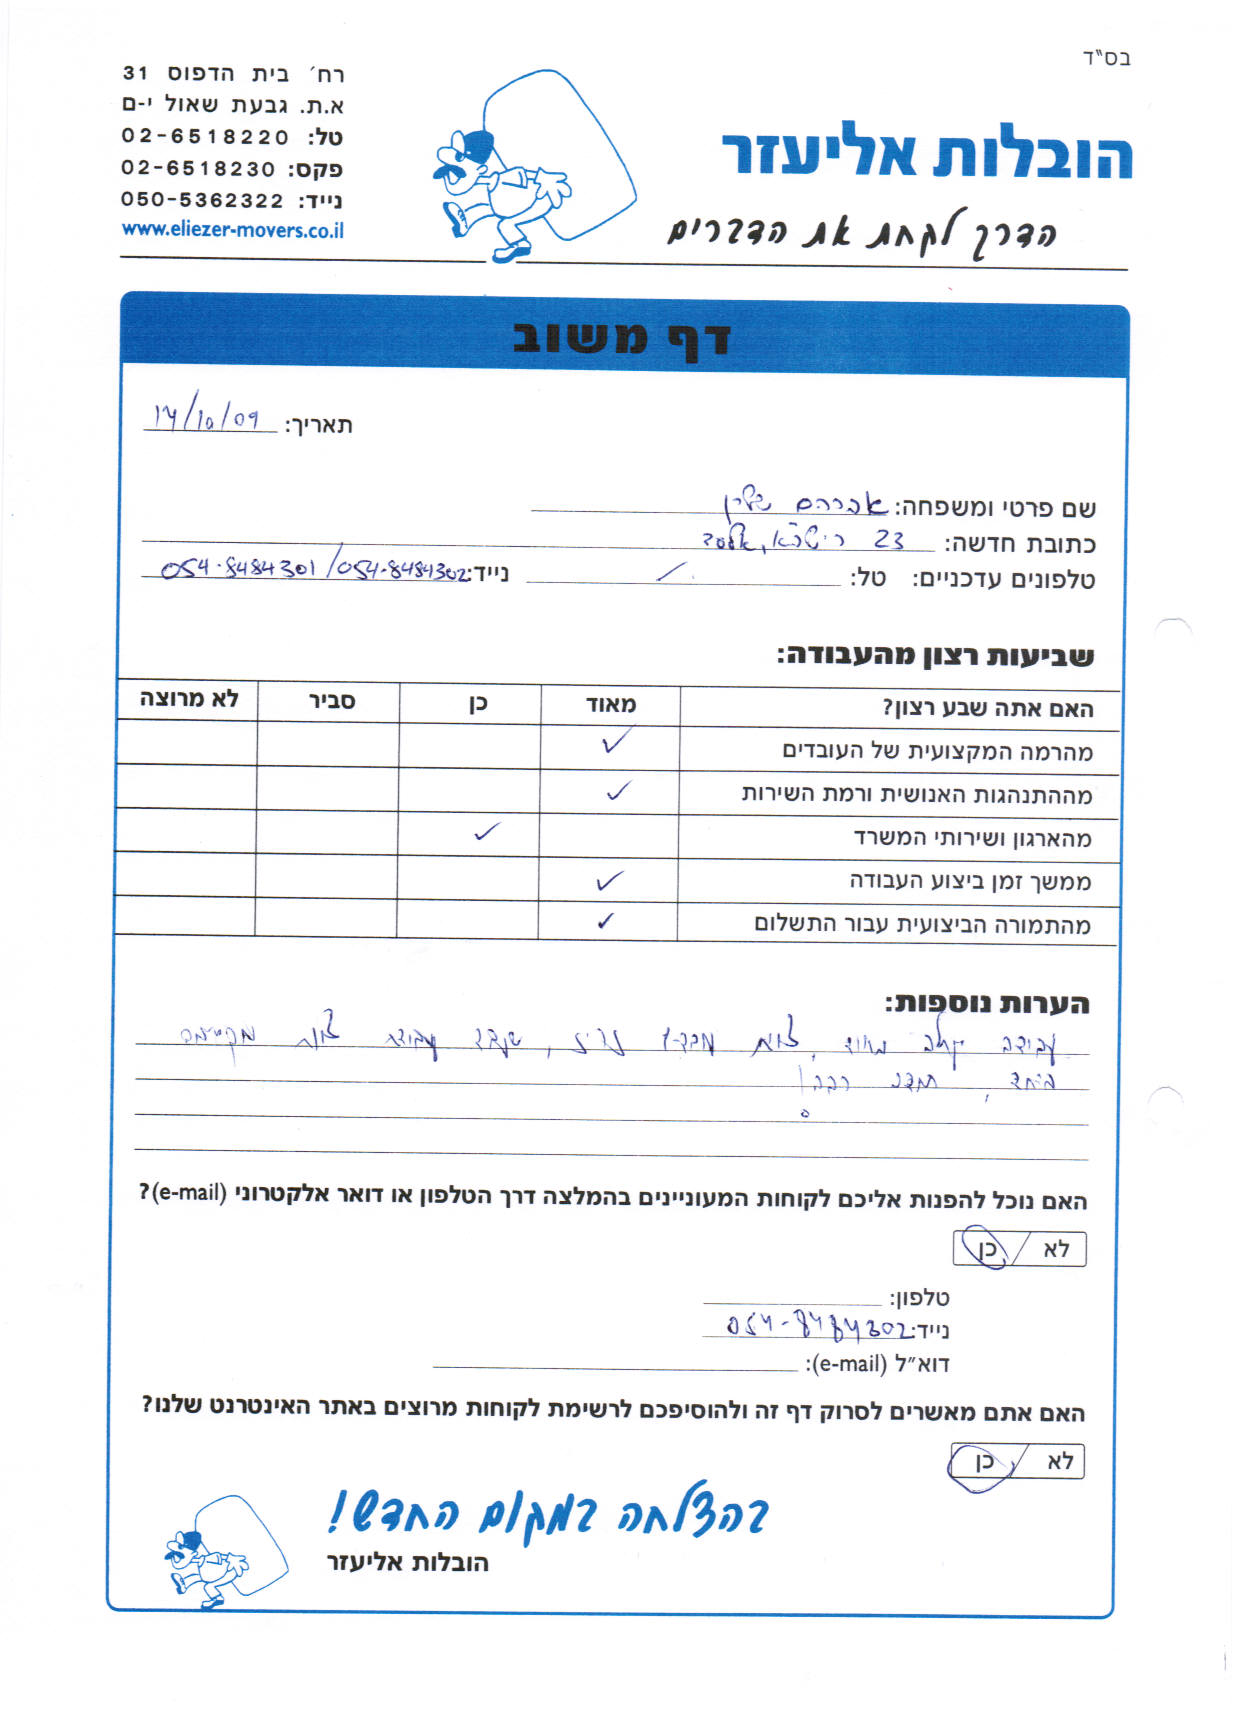 בס"ד
הובלות אליעזר
הדרך לקחת את הדברים
רח׳ בית הדפוס 31
א.ת. גבעת שאול י-ם
טל: 02-6518220
פקס: 02-6518230
נייד: 050-5362322
www.eliezer-movers.co.il
דף משוב
תאריך: 14/10/09
שם פרטי ומשפחה: אברהם
כתובת חדשה: 23
טלפונים עדכניים: טל: / נייד: 054-8484301/054-8484302
שביעות רצון מהעבודה:
האם אתה שבע רצון? מאוד כן סביר לא מרוצה
מהרמה המקצועית של העובדים ✓
מההתנהגות האנושית ורמת השירות ✓
מהארגון ושירותי המשרד ✓
ממשך זמן ביצוע העבודה ✓
מהתמורה הביצועית עבור התשלום ✓
הערות נוספות:
עבודה יעילה מאוד, צוות
ביחד, תודה רבה!
האם נוכל להפנות אליכם לקוחות המעוניינים בהמלצה דרך הטלפון או דואר אלקטרוני (e-mail)?
לא / כן
טלפון:
נייד: 054-8484302
דוא"ל (e-mail):
האם אתם מאשרים לסרוק דף זה ולהוסיפכם לרשימת לקוחות מרוצים באתר האינטרנט שלנו?
לא / כן
בהצלחה במקום החדש!
הובלות אליעזר